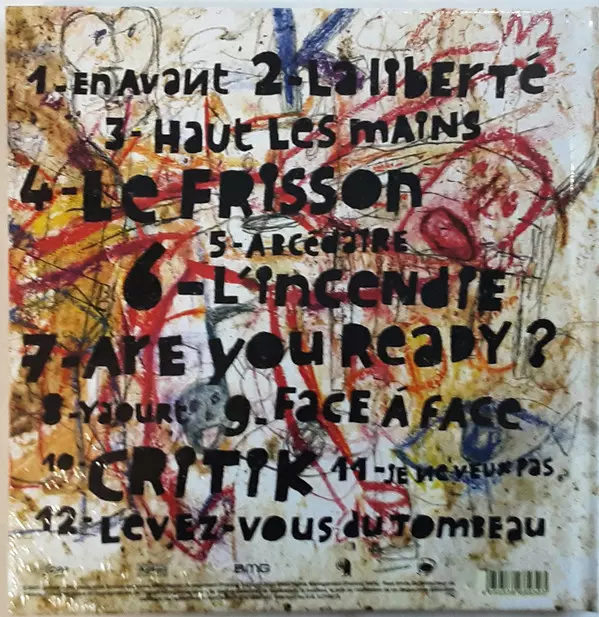 1-En Avant 2-La liberté
3-Haut les mains
4-Le Frisson
5-Abcédaire
6-L'incendie
7-Are you ready ?
8-Yaourt 9-Face à face
10-Critik 11-je ne veux pas
12-Levez-vous du tombeau
BMG